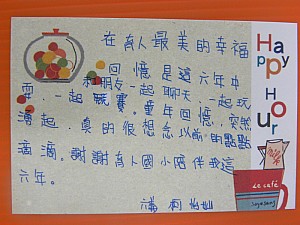 在育人最美的幸福
回憶是這六年中
和朋友一起聊天、一起玩
耍、一起競賽。童年回憶,突然
湧起,真的很想念以前的點點
滴滴。謝謝育人國小陪伴我這
六年。
六
柯
Happy
Hour
Le café